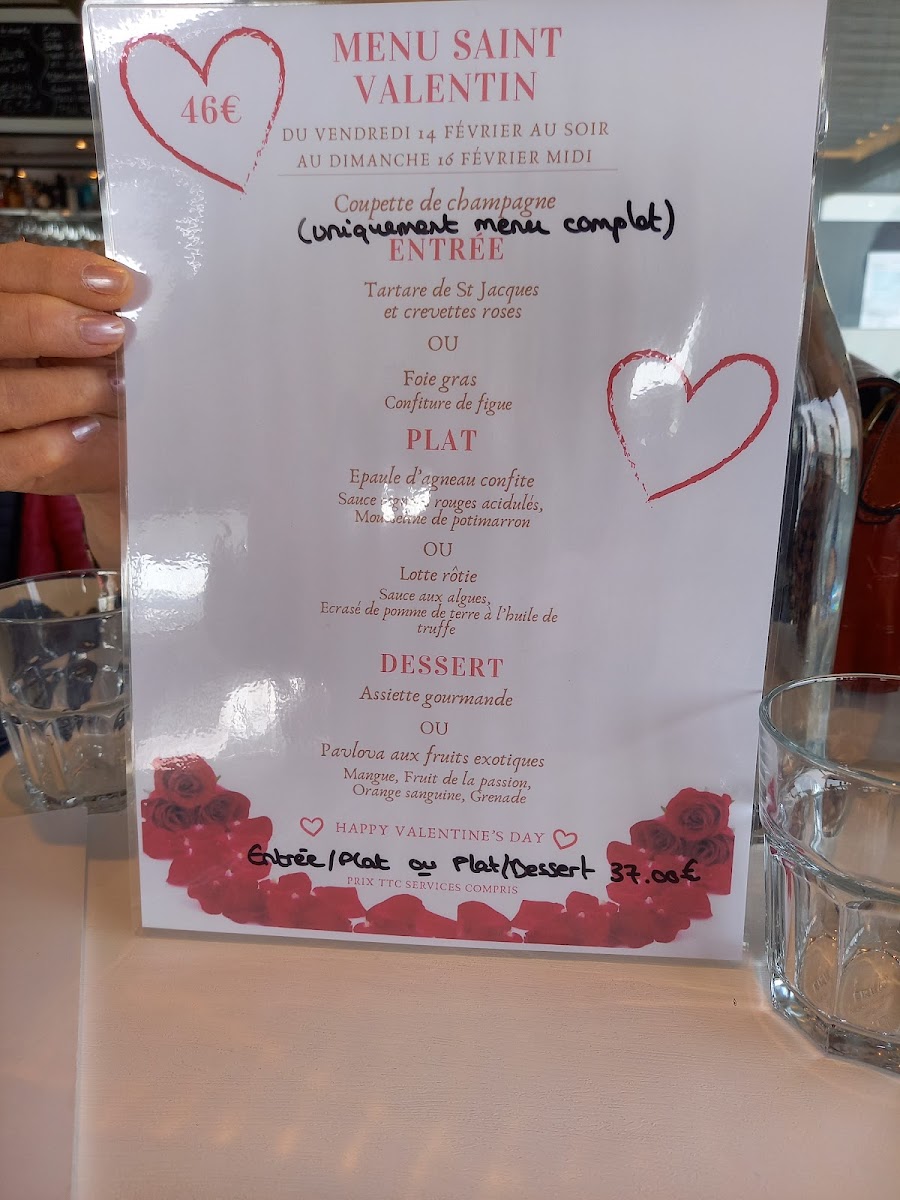 46€
MENU SAINT
VALENTIN
DU VENDREDI 14 FÉVRIER AU SOIR
AU DIMANCHE 16 FÉVRIER MIDI
Coupette de champagne
(uniquement menu complet)
ENTRÉE
Tartare de St Jacques
et crevettes roses
OU
Foie gras
Confiture de figue
PLAT
Epaule d'agneau confite
Sauce rouges acidulés,
de potimarron
OU
Lotte rôtie
Sauce aux algues,
Ecrasé de pomme de terre à l'huile de
truffe
DESSERT
Assiette gourmande
OU
Pavlova aux fruits exotiques
Mangue, Fruit de la passion,
Orange sanguine, Grenade
HAPPY VALENTINE'S DAY
Entrée/Plat ou Plat/Dessert 37.00€
PRIX TTC SERVICES COMPRIS